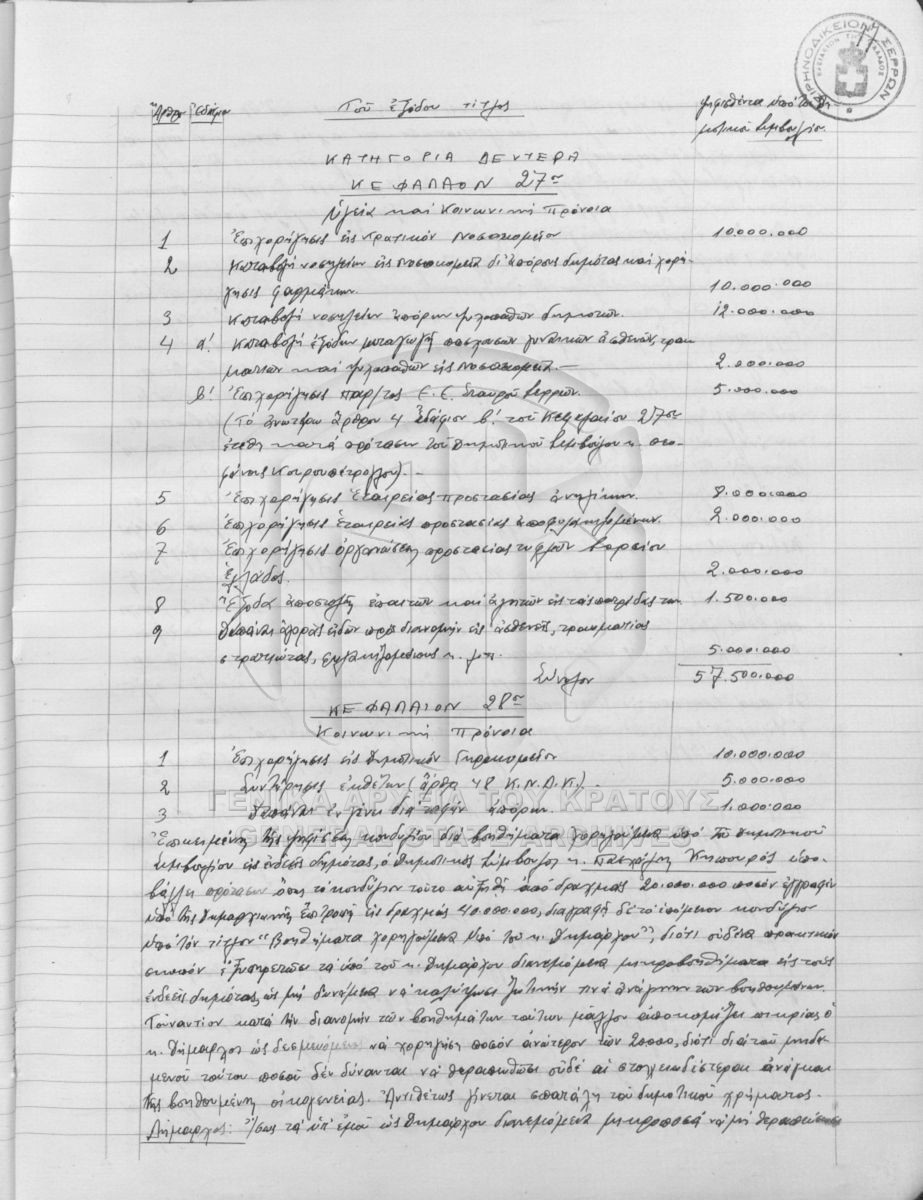 ΕΙΡΗΝΟΔΙΚΕΙΟΝ ΣΕΡΡΩΝ
Ἄρθρον Ἐδάφιον Τοῦ ἐξόδου τίτλος ψηφισθέντα ὑπὸ τοῦ Δη
μοτικοῦ Συμβουλίου
ΚΑΤΗΓΟΡΙΑ ΔΕΥΤΕΡΑ
ΚΕΦΑΛΑΙΟΝ 27ον
Ὑγεία καί Κοινωνική Πρόνοια
1 Ἐπιχορήγησις εἰς Κρατικόν Νοσοκομεῖον 10.000.000
2 Καταβολή νοσηλείων εἰς νοσοκομεῖα δι' ἀπόρους δημότας καί χορή
γησις φαρμάκων. 10.000.000
3 Καταβολή νοσηλείων ἀπόρων ψυχοπαθῶν δημοτῶν. 12.000.000
4 α'. Καταβολή ἐξόδων μεταγωγῆς πασχουσῶν γυναικῶν ἀσθενῶν, τραυ
ματιῶν καί ψυχοπαθῶν εἰς νοσοκομεῖα.— 2.000.000
β' Ἐπιχορήγησις παρ/τος Ε.Ε. Σταυροῦ Σερρῶν 5.000.000
(Τό ἀνωτέρω ἄρθρον 4 ἐδάφιον β'. τοῦ Κεφαλαίου 27ου
ἐτέθη κατά πρότασιν τοῦ Δημοτικοῦ Συμβούλου κ. Στε
φάνου Κουρουπέτρογλου).—
5 Ἐπιχορήγησις Ἑταιρείας προστασίας ἀνηλίκων. 8.000.000
6 Ἐπιχορήγησις Ἑταιρείας προστασίας ἀποφυλακιζομένων. 2.000.000
7 Ἐπιχορήγησις ὀργανώσεως προστασίας τυφλῶν Βορείου
Ἑλλάδος. 2.000.000
8 Ἔξοδα ἀποστολῆς ἐπαιτῶν καί ἀλητῶν εἰς τάς πατρίδας των 1.500.000
9 Δαπάναι ἀγορᾶς εἰδῶν πρός διανομήν εἰς ἀσθενεῖς, τραυματίας
στρατιώτας, φυλακιζομένους κ.λπ. 5.000.000
Σύνολον 57.500.000
ΚΕΦΑΛΑΙΟΝ 28ον
Κοινωνική Πρόνοια
1 Ἐπιχορήγησις εἰς Δημοτικόν Γηροκομεῖον 10.000.000
2 Συντήρησις ἐκθέτων (ἄρθρ 48 Κ.Ν.Δ.Κ.). 5.000.000
3 Δαπάναι ἐν γένει διά ταφήν ἀπόρων. 1.000.000
ΓΕΝΙΚΑ ΑΡΧΕΙΑ ΤΟΥ ΚΡΑΤΟΥΣ
GENERAL STATE ARCHIVES
Ἐπικειμένης τῆς ψηφίσεως κονδυλίου διά βοηθήματα χορηγούμενα ὑπό τοῦ Δημοτικοῦ
Συμβουλίου εἰς ἐνδεεῖς δημότας, ὁ Δημοτικός Σύμβουλος κ. Πασχάλης Κηπουρός ὑπο-
βάλλει πρότασιν ὅπως τό κονδύλιον τοῦτο αὐξηθῇ ἀπό δραχμάς 20.000.000 ποσόν ἐγγραφέν
ὑπό τῆς Δημαρχιακῆς Ἐπιτροπῆς εἰς δραχμάς 40.000.000, διαγραφῇ δέ τό ἑπόμενον κονδύλιον
ὑπό τόν τίτλον "Βοηθήματα χορηγούμενα ὑπό τοῦ κ. Δημάρχου", διότι οὐδένα πρακτικόν
σκοπόν ἐξυπηρετοῦσι τά ὑπό τοῦ κ. Δημάρχου διανεμόμενα μικροβοηθήματα εἰς τούς
ἐνδεεῖς δημότας, ὡς μή δυνάμενα νά καλύψωσι ζωτικήν τινά ἀνάγκην τῶν βοηθουμένων.
Τοὐναντίον κατά τήν διανομήν τῶν βοηθημάτων τούτων μᾶλλον ἀποκομίζει πικρίας ὁ
κ. Δήμαρχος ὡς δεσμευόμενος νά χορηγήσῃ ποσόν ἀνώτερον τῶν 20.000, διότι διά τοῦ μηδα-
μινοῦ τούτου ποσοῦ δέν δύνανται νά θεραπευθῶσι οὐδέ αἱ στοιχειωδέστεραι ἀνάγκαι
τῆς βοηθουμένης οἰκογενείας. Ἀντιθέτως γίνεται σπατάλη τοῦ δημοτικοῦ χρήματος.
Δήμαρχος: Ἴσως τά ὑπ' ἐμοῦ ὡς Δημάρχου διανεμόμενα μικροποσά νά μή θεραπεύουν